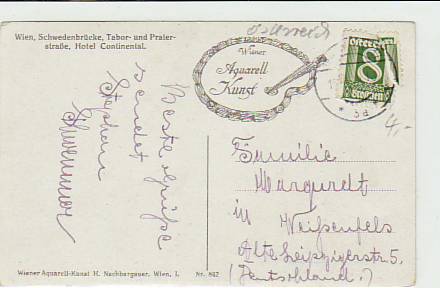 Österreich
Wien, Schwedenbrücke, Tabor- und Prater-
straße, Hotel Continental.
Wiener
Aquarell
Kunst
8
Groschen
4,-
Beste Grüße
sendet
Stephan
Familie
in Weißenfels
Alte Leipzigerstr. 5.
(Deutschland.)
Wiener Aquarell-Kunst H. Nachbargauer, Wien, I. Nr. 842